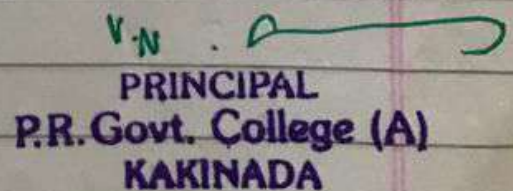 V.N.
PRINCIPAL
P.R. Govt. College (A)
KAKINADA